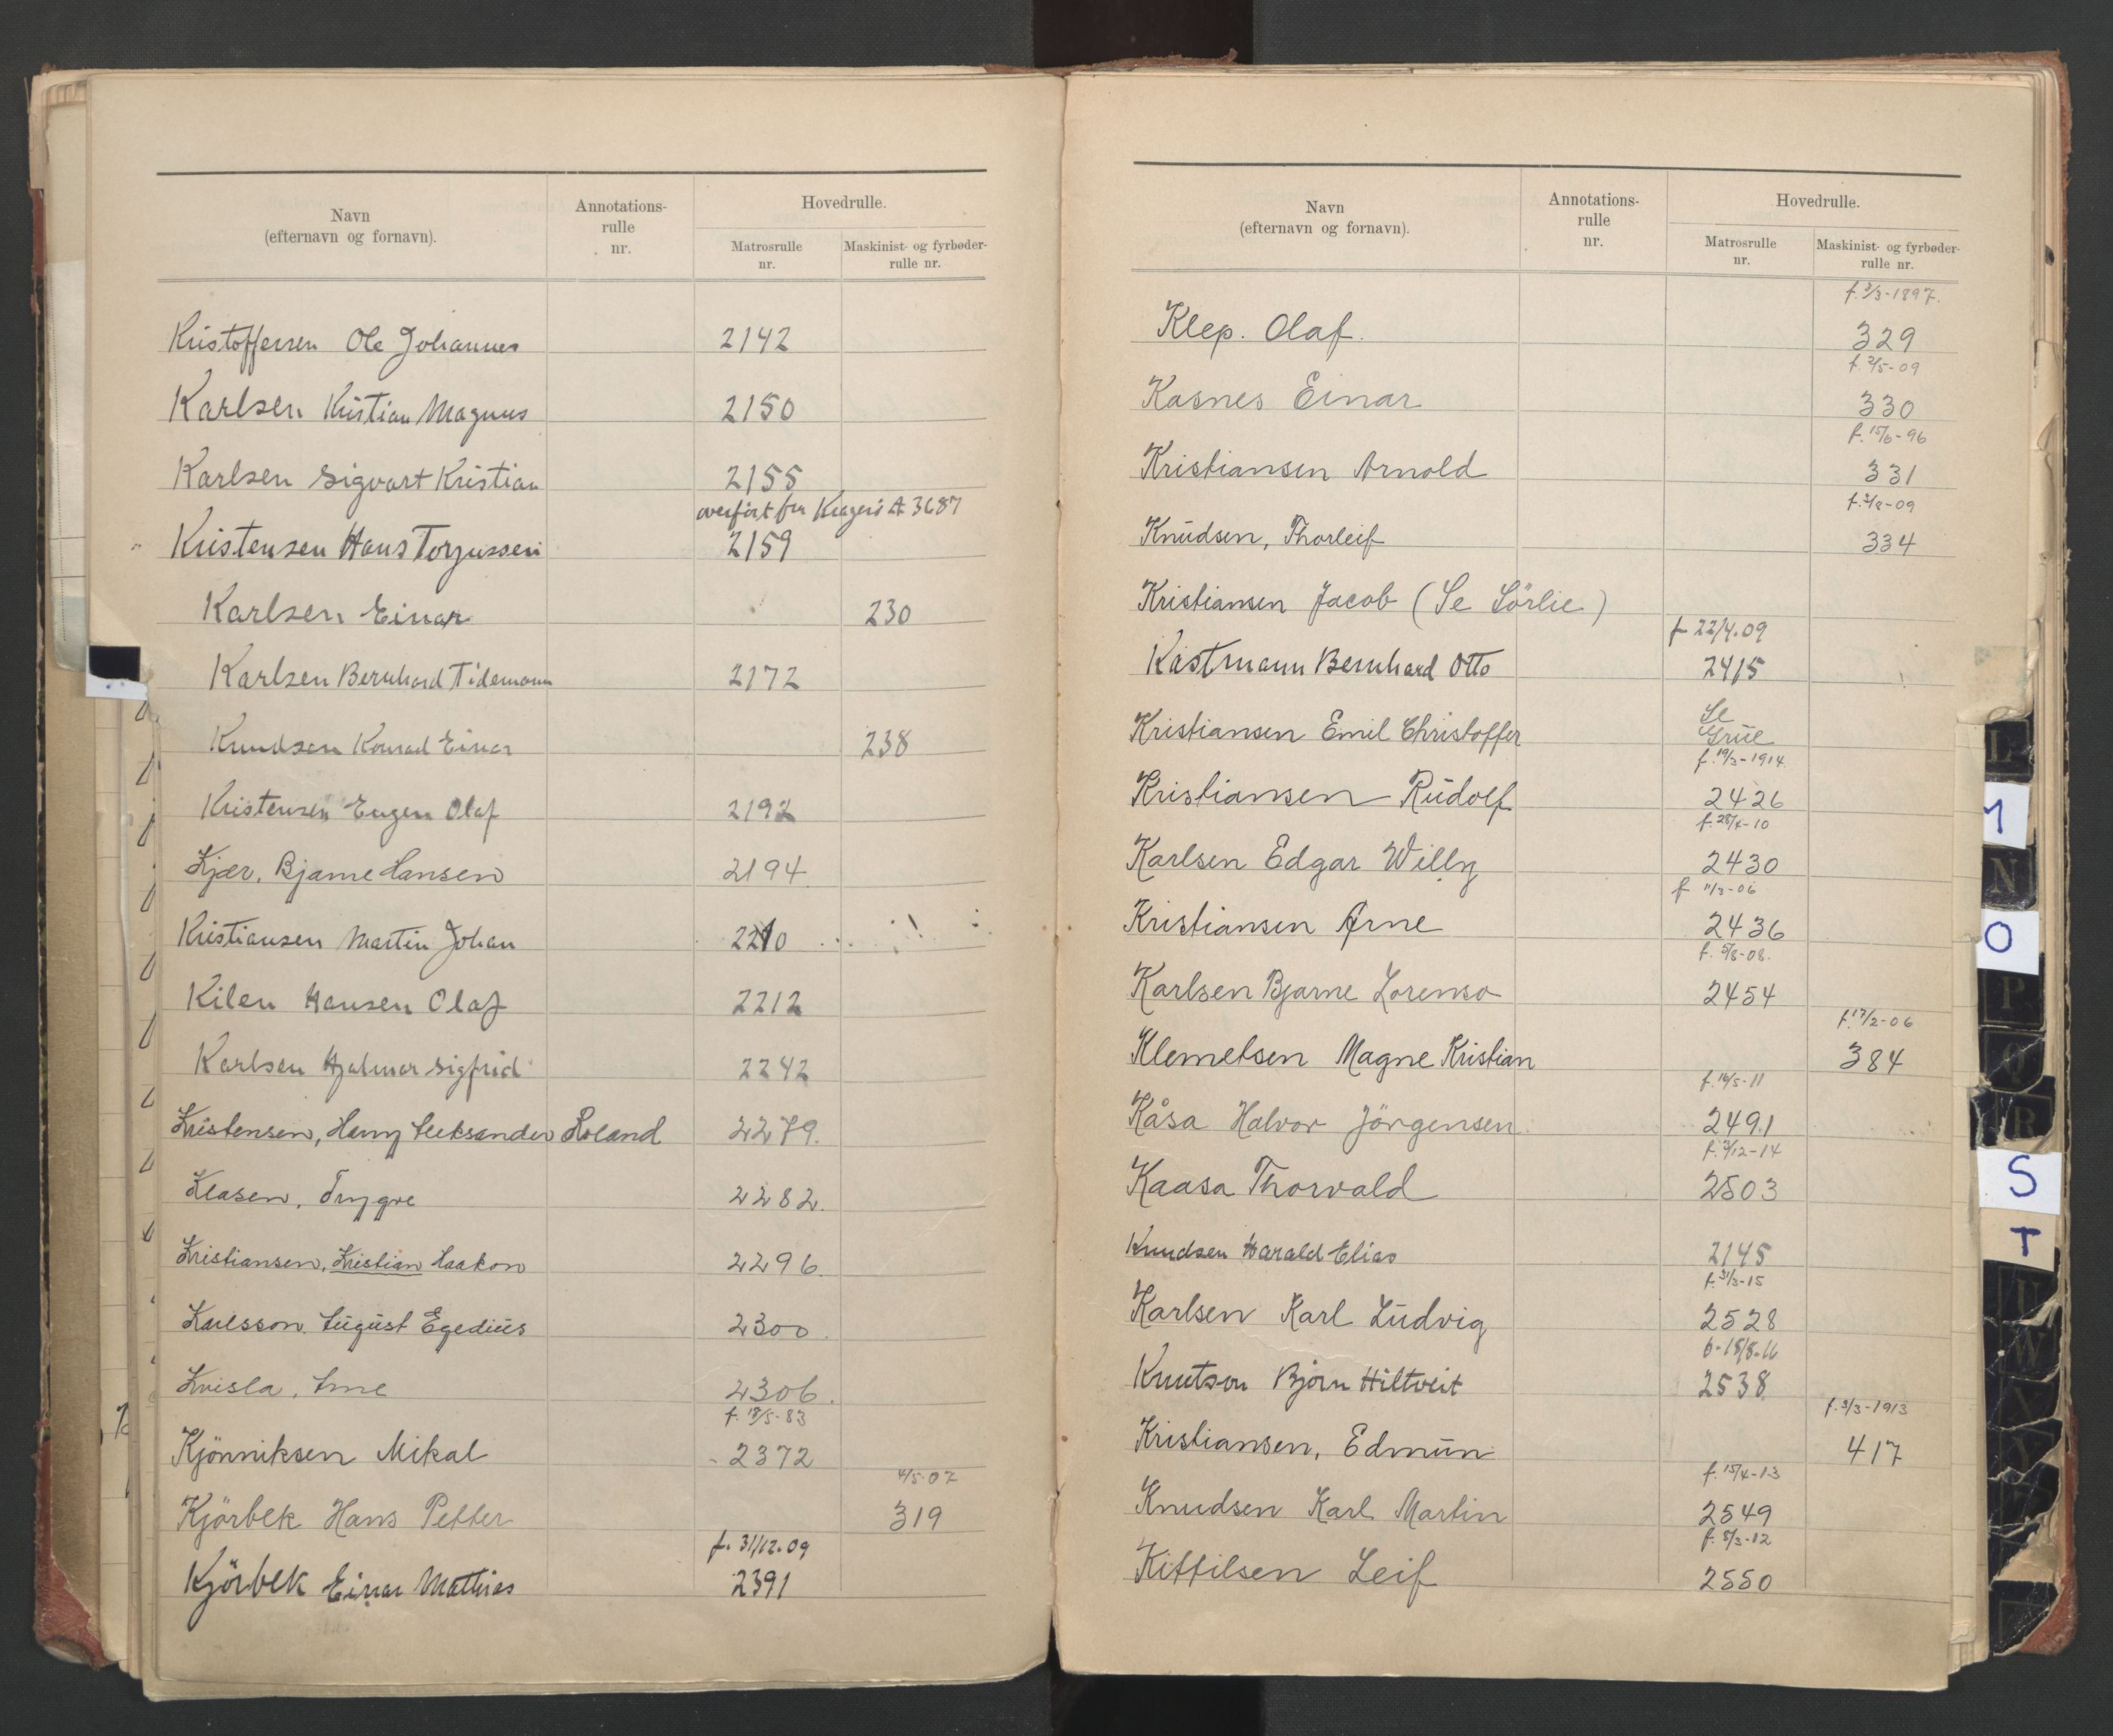 Navn
(efternavn og fornavn).
Annotations-
rulle
nr.
Hovedrulle.
Matrosrulle
nr.
Maskinist- og fyrbøder-
rulle nr.
Kristoffersen Ole Johannes 2142
Karlsen Kristian Magnus 2150
Karlsen Sigvart Kristian 2155
overført fra Kragerö A 3687
Kristensen Hans Torjussen 2159
Karlsen Einar 230
Karlsen Bernhard Tidemann 2172
Knudsen Konrad Einar 238
Kristensen Eugen Olaf 2192
Kjær, Bjarne Hansen 2194
Kristiansen Martin Johan 2210
Kilen Hansen Olaf 2212
Karlsen Hjalmar Sigfrid 2242
Kristensen, Harry Aleksander Roland 2279.
Klasen, Trygve 2282.
Kristiansen, Kristian Haakon 2296.
Karlsson, August Egedius 2300.
Kvisla, Arne 2306.
f. 18/5-83
Kjönniksen Mikal 2372
4/5-07
Kjörbek Hans Petter 319
f. 31/12.09
Kjörbek Einar Mathias 2391
Navn
(efternavn og fornavn).
Annotations-
rulle
nr.
Hovedrulle.
Matrosrulle
nr.
Maskinist- og fyrbøder-
rulle nr.
f. 3/3-1897.
Klep. Olaf. 329
f. 2/5-09
Kasnes Einar 330
f. 15/6-96
Kristiansen Arnold 331
f. 3/8-09
Knudsen, Thorleif 334
Kristiansen Jacob (Se Sörlie)
f 22/4.09
Kastmann Bernhard Otto 2415
Kristiansen Emil Christoffer Se
Grue
f. 19/3-1914.
Kristiansen Rudolf 2426
f. 28/4-10
Karlsen Edgar Willy 2430
f 11/3-06
Kristiansen Arne 2436
f. 5/8-08.
Karlsen Bjarne Lorenso 2454
f. 17/2-06
Klemetsen Magne Kristian 384
f. 16/5-11
Kåsa Halvor Jörgensen 2491
f. 3/12-14
Kaasa Thorvald 2503
Knudsen Harald Elias 2145
f. 31/3-15
Karlsen Karl Ludvig 2528
6-18/8-16
Knutson Björn Hiltveit 2538
f. 3/3-1913
Kristiansen, Edmun 417
f. 15/4-13
Knudsen Karl Martin 2549
f. 8/3-12
Kittilsen Leif 2550
M
N
O
P
R
S
T